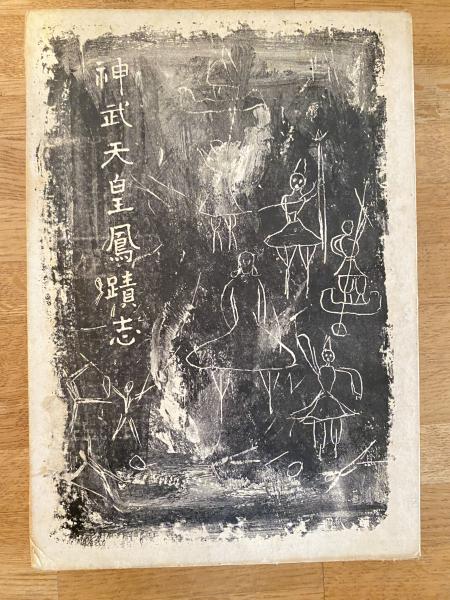 神武天皇鳳蹟志